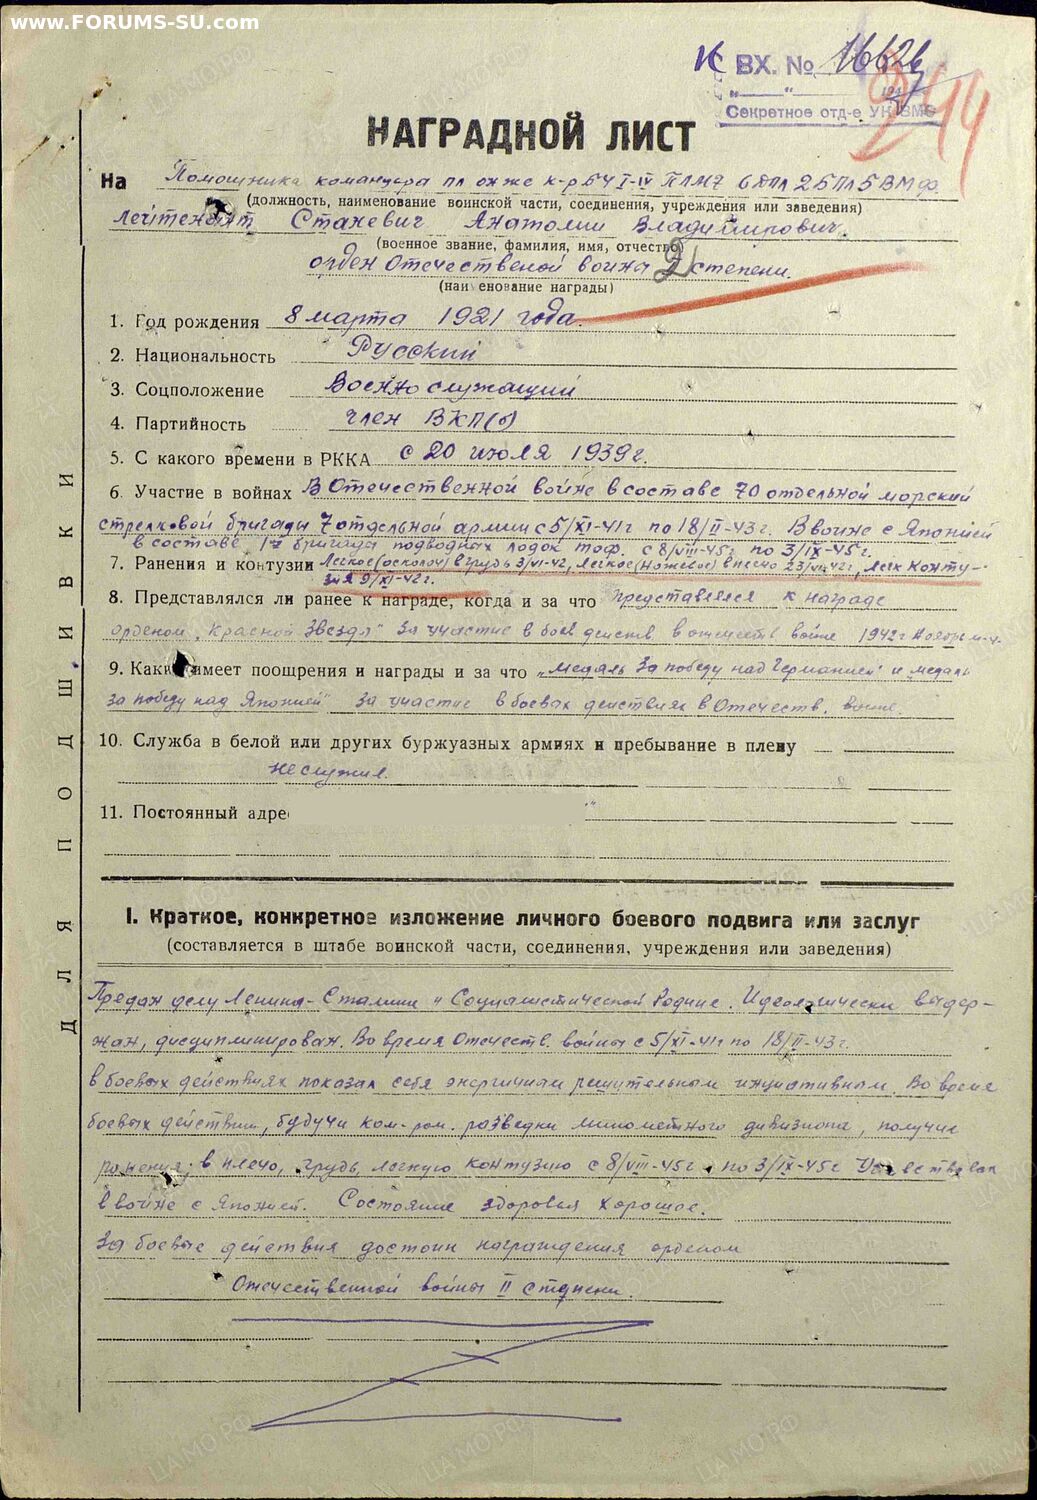 www.FORUMS-SU.com
ВХ. № 16626
194
Секретное отд-е УК ВМС
244
НАГРАДНОЙ ЛИСТ
На Помощника командира пл он же к-р БЧ I-IV ПЛ М7 6 ДПЛ 2БПЛ 5ВМФ
(должность, наименование воинской части, соединения, учреждения или заведения)
лейтенант Станевич Анатолий Владимирович.
(военное звание, фамилия, имя, отчество)
орден Отечественой войны 2 степени.
(наименование награды)
1. Год рождения 8 марта 1921 года.
2. Национальность Русский
3. Соцположение Военнослужащий
4. Партийность член ВКП(б)
5. С какого времени в РККА с 20 июля 1939г.
6. Участие в войнах В Отечественной войне в составе 70 отдельной морский
стрелковой бригады 7 отдельной армии с 5/XI-41г по 18/II-43г. В войне с Японией
в составе 17 бригады подводных лодок тоф. с 8/VIII-45г по 3/IX-45г.
7. Ранения и контузии Легкое (осколоч) в грудь 3/VI-42, легкое (ножевое) в плечо 23/VII-42г, легк конту-
зия 9/XI-42г.
8. Представлялся ли ранее к награде, когда и за что представлялся к награде
орденом „Красной Звезды" за участие в боев действ. в отечеств войне 1942г Ноябрь м-ц
9. Какие имеет поощрения и награды и за что „медаль За победу над Германией" и медаль
за победу над Японией" за участие в боевых действиях в Отечеств. войне.
10. Служба в белой или других буржуазных армиях и пребывание в плену
не служил.
11. Постоянный адре
ДЛЯ ПОДШИВКИ
I. Краткое, конкретное изложение личного боевого подвига или заслуг
(составляется в штабе воинской части, соединения, учреждения или заведения)
Предан делу Ленина-Сталина и Социалистической Родине. Идеологически выдер-
жан, дисциплинирован. Во время Отечеств. войны с 5/XI-41г по 18/II-43г.
в боевых действиях показал себя энергичным решительным инциативным. Во время
боевых действий, будучи ком-ром. разведки минометного дивизиона, получил
ранения: в плечо, грудь, легкую контузию с 8/VIII-45г по 3/IX-45г Участвовал
в войне с Японией. Состояние здоровья хорошое.
За боевые действия достоин награждения орденом
Отечественной войны II степени.